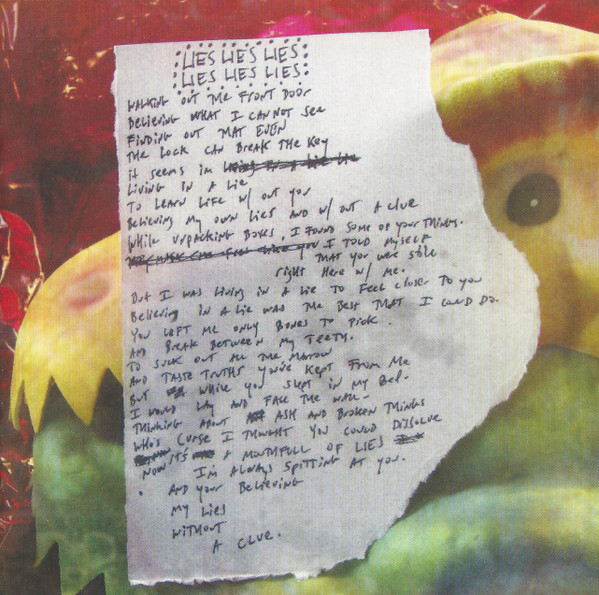 LIES LIES LIES
LIES LIES LIES
WALKING OUT THE FRONT DOOR
BELIEVING WHAT I CANNOT SEE
FINDING OUT THAT EVEN
THE LOCK CAN BREAK THE KEY
IT SEEMS IM
LIVING IN A LIE
TO LEARN LIFE W/ OUT YOU
BELIEVING MY OWN LIES AND W/ OUT A CLUE
WHILE UNPACKING BOXES, I FOUND SOME OF YOUR THINGS.
I TOLD MYSELF
THAT YOU WERE STILL
RIGHT HERE W/ ME.
BUT I WAS LIVING IN A LIE TO FEEL CLOSER TO YOU
BELIEVING IN A LIE WAS THE BEST THAT I COULD DO.
YOU LEFT ME ONLY BONES TO PICK.
AND BREAK BETWEEN MY TEETH.
TO SUCK OUT ALL THE MARROW
AND TASTE TRUTHS YOU'VE KEPT FROM ME
BUT WHILE YOU SLEPT IN MY BED-
I WOULD LAY AND FACE THE WALL-
THINKING ABOUT ASH AND BROKEN THINGS
WHO'S CURSE I THOUGHT YOU COULD DISSOLVE
NOW IT'S A MOUTHFULL OF LIES
I'M ALWAYS SPITTING AT YOU.
AND YOUR BELIEVING
MY LIES
WITHOUT
A CLUE.